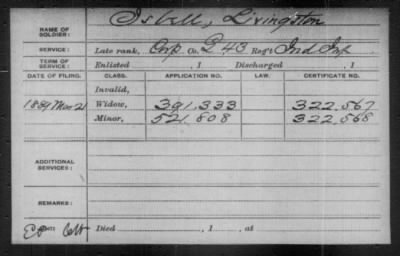 NAME OF SOLDIER: Isbell, Livingston
SERVICE: Late rank, Corp Co. G 43 Reg't Ind Inf
TERM OF SERVICE: Enlisted , 1 Discharged , 1
DATE OF FILING. CLASS. APPLICATION NO. LAW. CERTIFICATE NO.
Invalid,
1889 Mar 21 Widow, 391.333 322.567
Minor, 521.808 322.568
ADDITIONAL SERVICES:
REMARKS:
Died , 1 , at